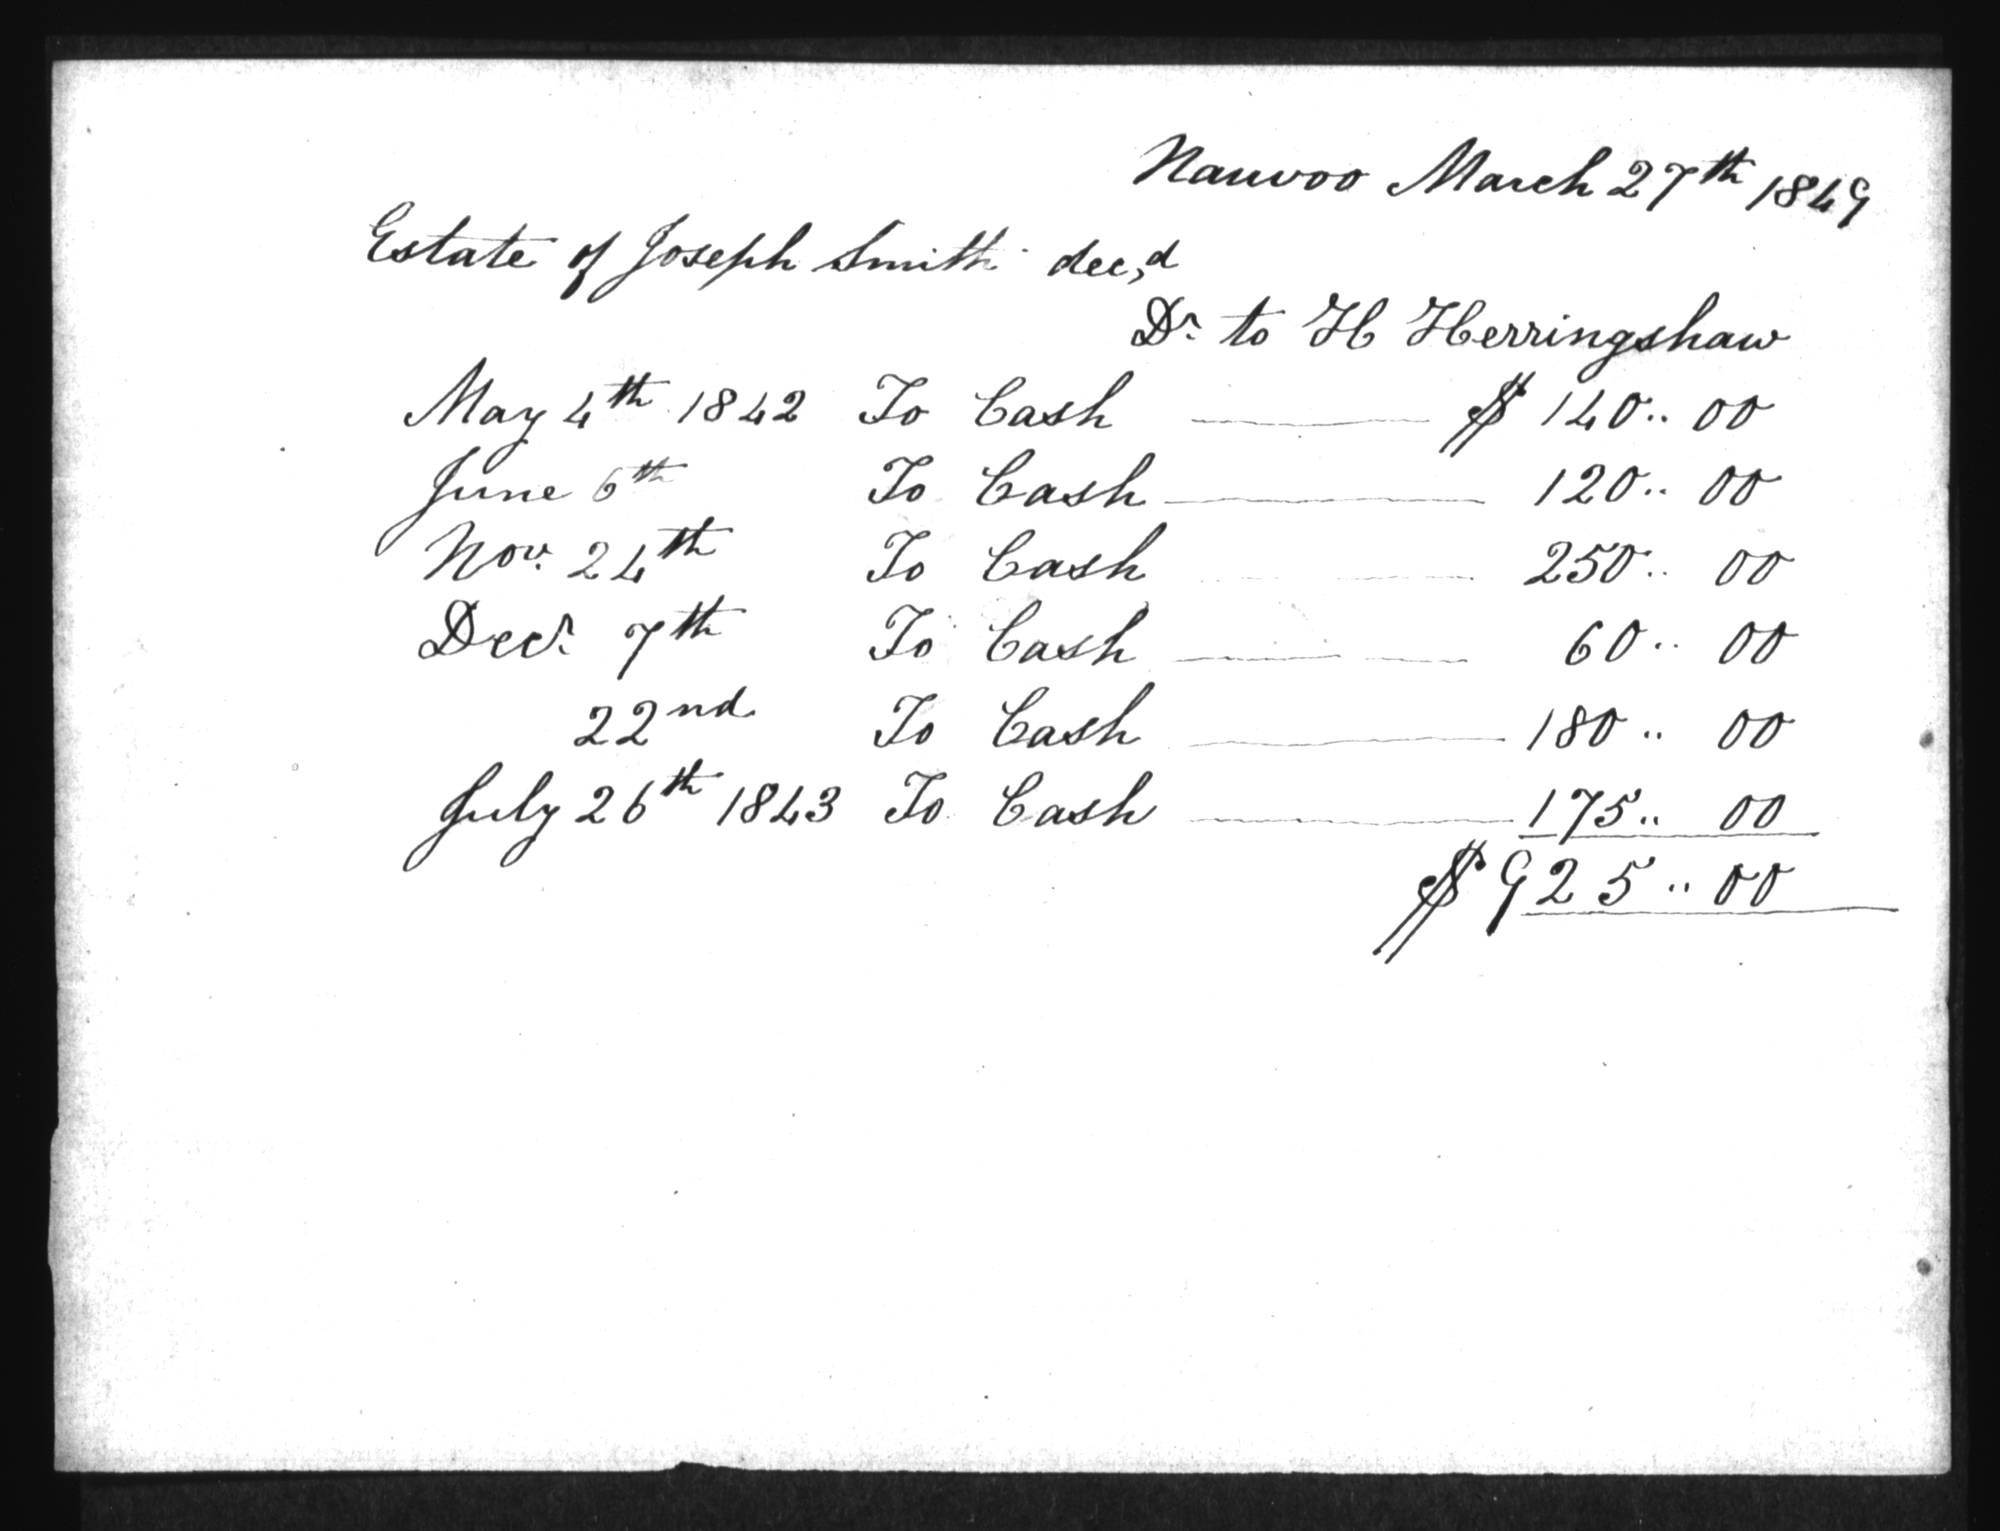 Nauvoo March 27th 1849
Estate of Joseph Smith dec,d
Dr to H Herringshaw
May 4th 1842 To Cash $ 140.. 00
June 6th To Cash 120.. 00
Nov. 24th To Cash 250.. 00
Decr. 7th To Cash 60.. 00
22nd To Cash 180.. 00
July 26th 1843 To Cash 175.. 00
$ 925.. 00